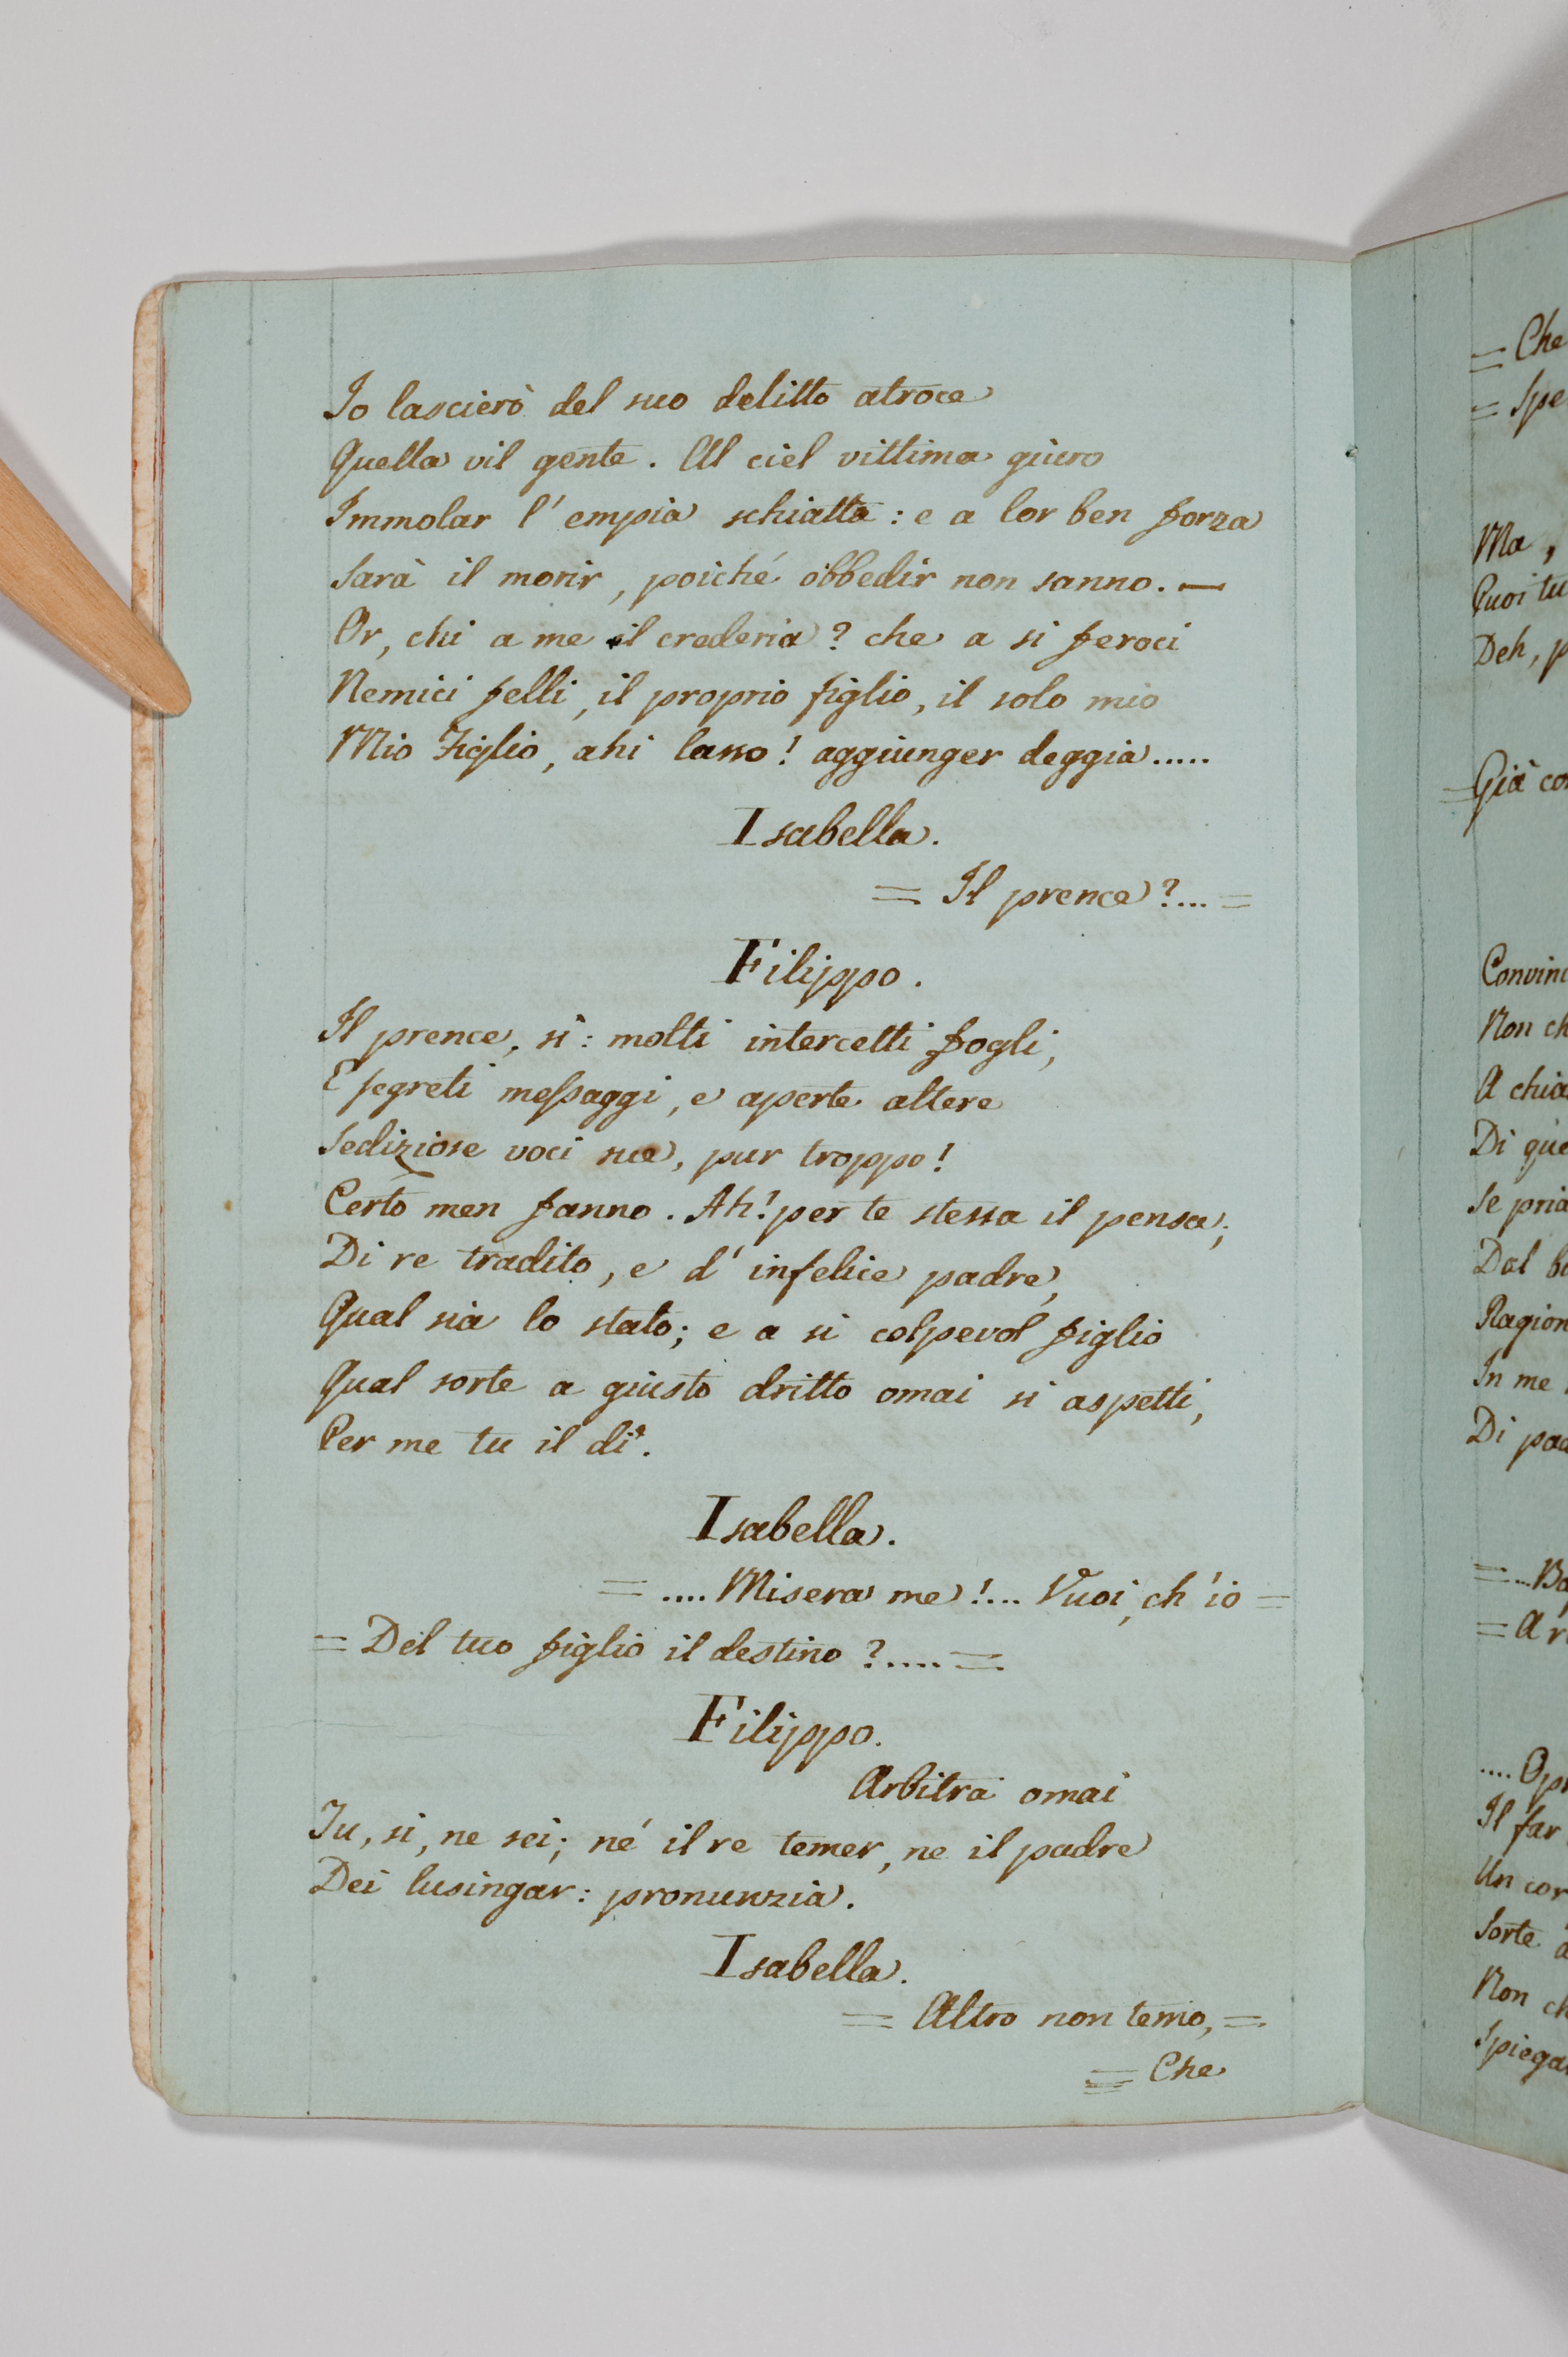 Io lascierò del suo delitto atroce
Quella vil gente. Al ciel vittima giuro
Immolar l'empia schiatta: e a lor ben forza
Sarà il morir, poiché obbedir non sanno. —
Or, chi a me il crederia? che a si feroci
Nemici felli, il proprio figlio, il solo mio
Mio Figlio, ahi lasso! aggiunger deggia.....
Isabella.
= Il prence?... =
Filippo.
Il prence, sì: molti intercetti fogli,
E segreti messaggi, e aperte altere
Sediziose voci sue, pur troppo!
Certo men fanno. Ah! per te stessa il pensa;
Di re tradito, e d'infelice padre,
Qual sia lo stato; e a si colpevol figlio
Qual sorte a giusto dritto omai si aspetti,
Per me tu il di'.
Isabella.
= .... Misera me!... Vuoi, ch'io =
= Del tuo figlio il destino?..... =
Filippo.
Arbitra omai
Tu, si, ne sei; né il re temer, ne il padre
Dei lusingar: pronunzia.
Isabella.
= Altro non temo, =
= Che
= Che
= Spe
Ma,
Puoi tu
Deh, p
= Già co
Convin
Non ch
A chia
Di que
Se pria
Dal b
Ragion
In me
Di pad
= A r
Il far
Un cor
Sorte a
Non ch
Spiega